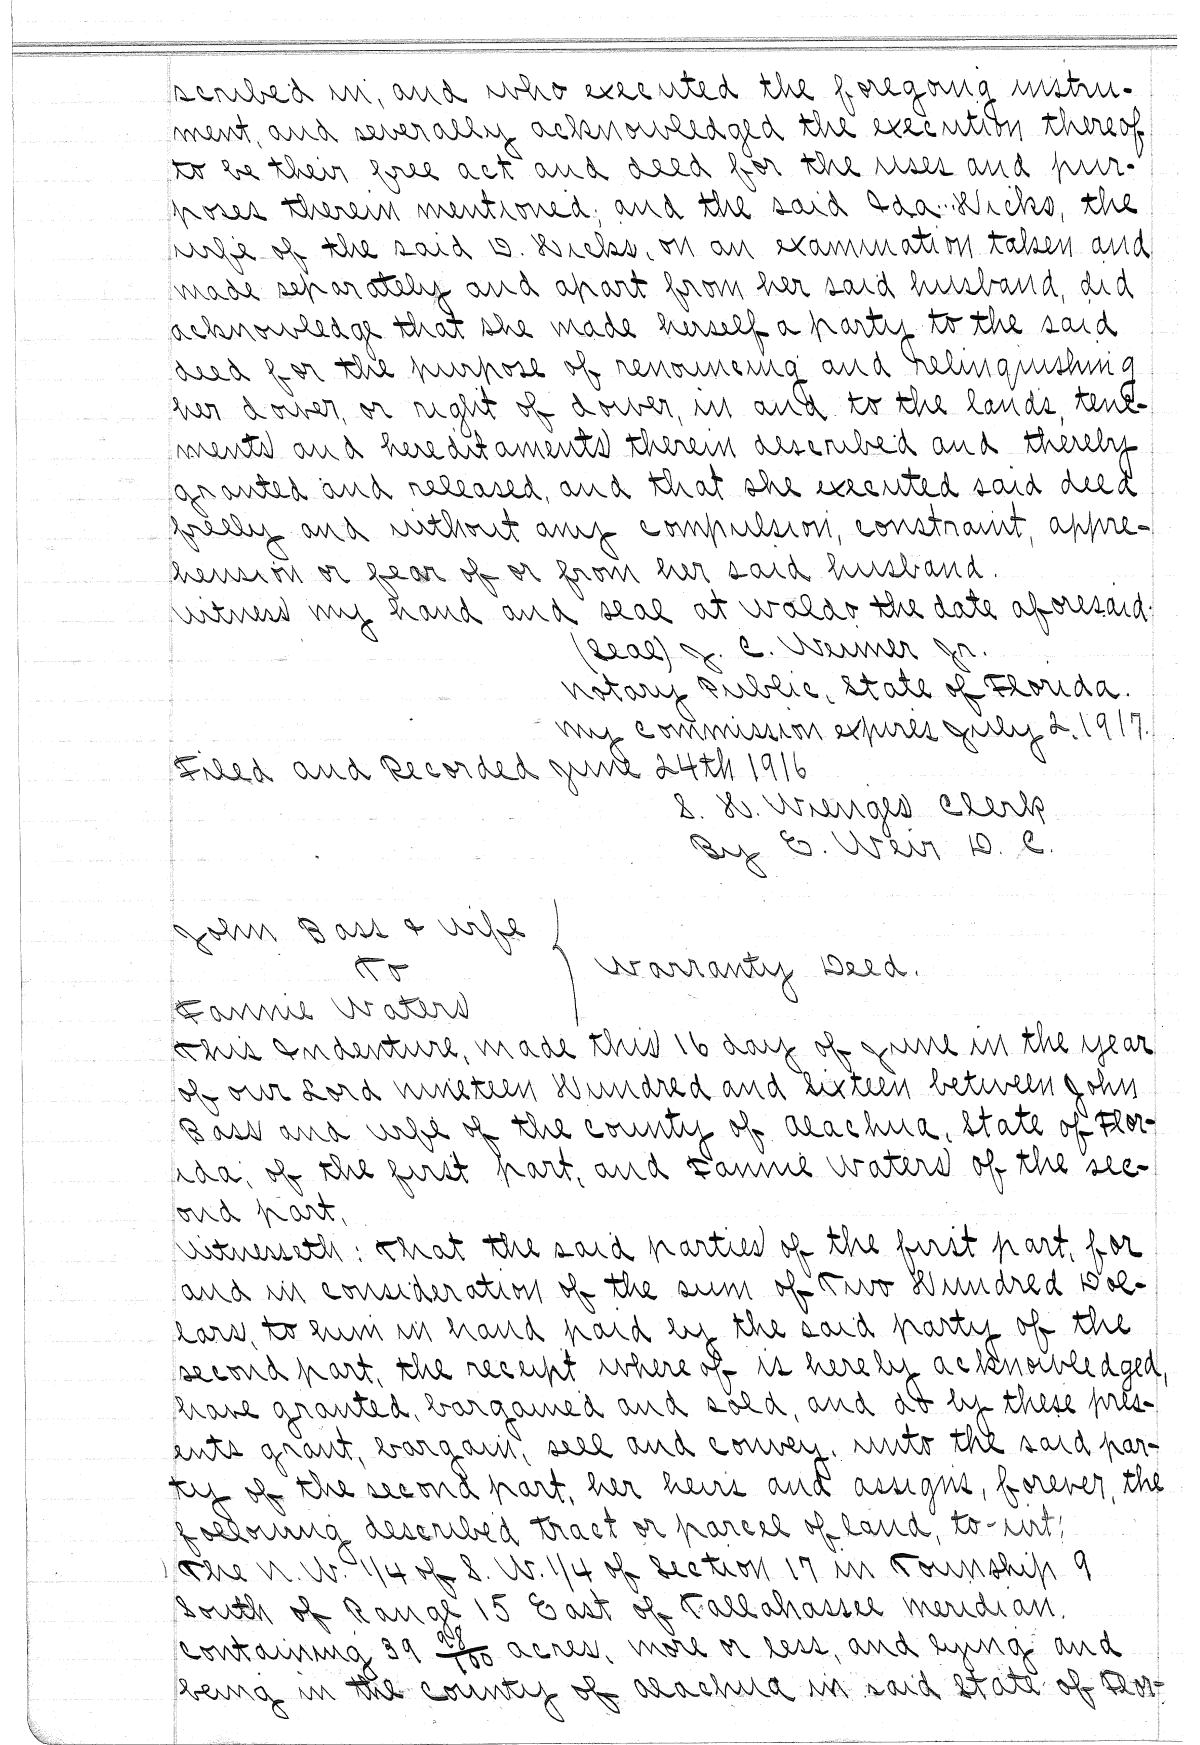 scribed in, and who executed the foregoing instru-
ment, and severally acknowledged the execution thereof
to be their free act and deed for the uses and pur-
poses therein mentioned; and the said Ida Hicks, the
wife of the said D. Hicks, on an examination taken and
made separately and apart from her said husband, did
acknowledge that she made herself a party to the said
deed for the purpose of renouncing and relinquishing
her dower, or right of dower, in and to the lands, tene-
ments and hereditaments therein described and thereby
granted and released, and that she executed said deed
freely and without any compulsion, constraint, appre-
hension or fear of or from her said husband.
Witness my hand and seal at Waldo the date aforesaid.
(Seal) J. C. Weimer Jr.
Notary Public, State of Florida.
My commission expires July 2, 1917.
Filed and Recorded June 24th 1916
S. H. Wienges Clerk
By E. Weir D. C.
John Bass & Wife
To
Warranty Deed.
Fannie Waters
This Indenture, made this 16 day of June in the year
of our Lord nineteen Hundred and Sixteen between John
Bass and wife of the county of Alachua, State of Flor-
ida, of the first part, and Fannie Waters of the sec-
ond part,
Witnesseth: That the said parties of the first part, for
and in consideration of the sum of Two Hundred Dol-
lars, to him in hand paid by the said party of the
second part, the receipt whereof is hereby acknowledged,
have granted, bargained and sold, and do by these pres-
ents grant, bargain, sell and convey, unto the said par-
ty of the second part, her heirs and assigns, forever, the
following described tract or parcel of land, to-wit;
The N.W. 1/4 of S.W. 1/4 of Section 17 in Township 9
South of Range 15 East of Tallahassee meridian.
containing 39 98/100 acres, more or less, and lying and
being in the county of Alachua in said State of Flor-